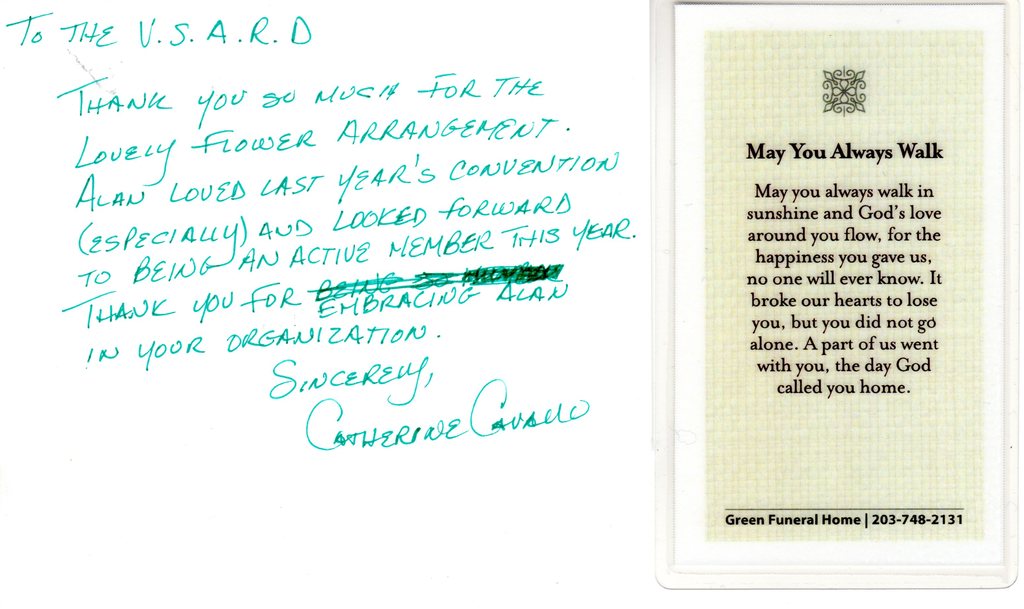 To THE V.S.A.R.D
THANK YOU SO MUCH FOR THE
LOVELY FLOWER ARRANGEMENT.
ALAN LOVED LAST YEAR'S CONVENTION
(ESPECIALLY) AND LOOKED FORWARD
TO BEING AN ACTIVE MEMBER THIS YEAR.
THANK YOU FOR
EMBRACING ALAN
IN YOUR ORGANIZATION.
SINCERELY,
CATHERINE CAVALLO
May You Always Walk
May you always walk in
sunshine and God's love
around you flow, for the
happiness you gave us,
no one will ever know. It
broke our hearts to lose
you, but you did not go
alone. A part of us went
with you, the day God
called you home.
Green Funeral Home | 203-748-2131